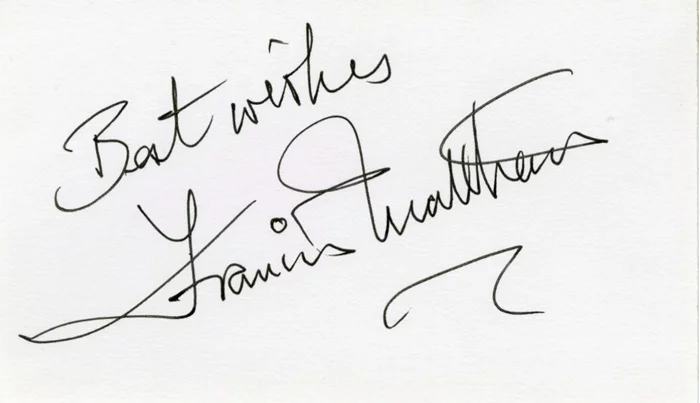 Best wishes
Francis Matthews